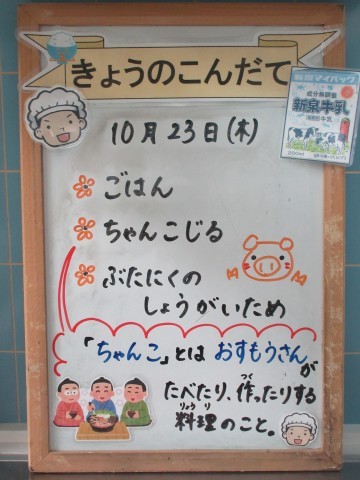 きょうのこんだて
10月23日(木)
ごはん
ちゃんこじる
ぶたにくの
しょうがいため
「ちゃんこ」とは おすもうさんが
たべたり、作ったりする
つく
料理のこと。
りょうり
成分無調整
新泉牛乳
200ml